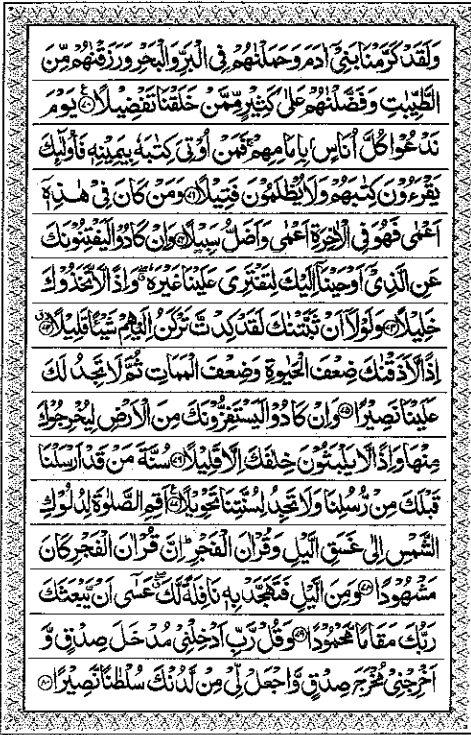 وَلَقَدْ كَرَّمْنَا بَنِيْٓ اٰدَمَ وَحَمَلْنٰهُمْ فِي الْبَرِّ وَالْبَحْرِ وَرَزَقْنٰهُمْ مِّنَ
الطَّيِّبٰتِ وَفَضَّلْنٰهُمْ عَلٰى كَثِيْرٍ مِّمَّنْ خَلَقْنَا تَفْضِيْلًا ۝٧٠ يَوْمَ
نَدْعُوْا كُلَّ اُنَاسٍۢ بِاِمَامِهِمْ ۚ فَمَنْ اُوْتِيَ كِتٰبَهٗ بِيَمِيْنِهٖ فَاُولٰٓئِكَ
يَقْرَءُوْنَ كِتٰبَهُمْ وَلَا يُظْلَمُوْنَ فَتِيْلًا ۝٧١ وَمَنْ كَانَ فِيْ هٰذِهٖٓ
اَعْمٰى فَهُوَ فِي الْاٰخِرَةِ اَعْمٰى وَاَضَلُّ سَبِيْلًا ۝٧٢ وَاِنْ كَادُوْا لَيَفْتِنُوْنَكَ
عَنِ الَّذِيْٓ اَوْحَيْنَآ اِلَيْكَ لِتَفْتَرِيَ عَلَيْنَا غَيْرَهٗ ۖ وَاِذًا لَّاتَّخَذُوْكَ
خَلِيْلًا ۝٧٣ وَلَوْلَآ اَنْ ثَبَّتْنٰكَ لَقَدْ كِدْتَّ تَرْكَنُ اِلَيْهِمْ شَيْـًٔا قَلِيْلًا ۝٧٤
اِذًا لَّاَذَقْنٰكَ ضِعْفَ الْحَيٰوةِ وَضِعْفَ الْمَمَاتِ ثُمَّ لَا تَجِدُ لَكَ
عَلَيْنَا نَصِيْرًا ۝٧٥ وَاِنْ كَادُوْا لَيَسْتَفِزُّوْنَكَ مِنَ الْاَرْضِ لِيُخْرِجُوْكَ
مِنْهَا وَاِذًا لَّا يَلْبَثُوْنَ خِلٰفَكَ اِلَّا قَلِيْلًا ۝٧٦ سُنَّةَ مَنْ قَدْ اَرْسَلْنَا
قَبْلَكَ مِنْ رُّسُلِنَا وَلَا تَجِدُ لِسُنَّتِنَا تَحْوِيْلًا ۝٧٧ اَقِمِ الصَّلٰوةَ لِدُلُوْكِ
الشَّمْسِ اِلٰى غَسَقِ الَّيْلِ وَقُرْاٰنَ الْفَجْرِ ۗ اِنَّ قُرْاٰنَ الْفَجْرِ كَانَ
مَشْهُوْدًا ۝٧٨ وَمِنَ الَّيْلِ فَتَهَجَّدْ بِهٖ نَافِلَةً لَّكَ ۖ عَسٰٓى اَنْ يَّبْعَثَكَ
رَبُّكَ مَقَامًا مَّحْمُوْدًا ۝٧٩ وَقُلْ رَّبِّ اَدْخِلْنِيْ مُدْخَلَ صِدْقٍ وَّ
اَخْرِجْنِيْ مُخْرَجَ صِدْقٍ وَّاجْعَلْ لِّيْ مِنْ لَّدُنْكَ سُلْطٰنًا نَّصِيْرًا ۝٨٠